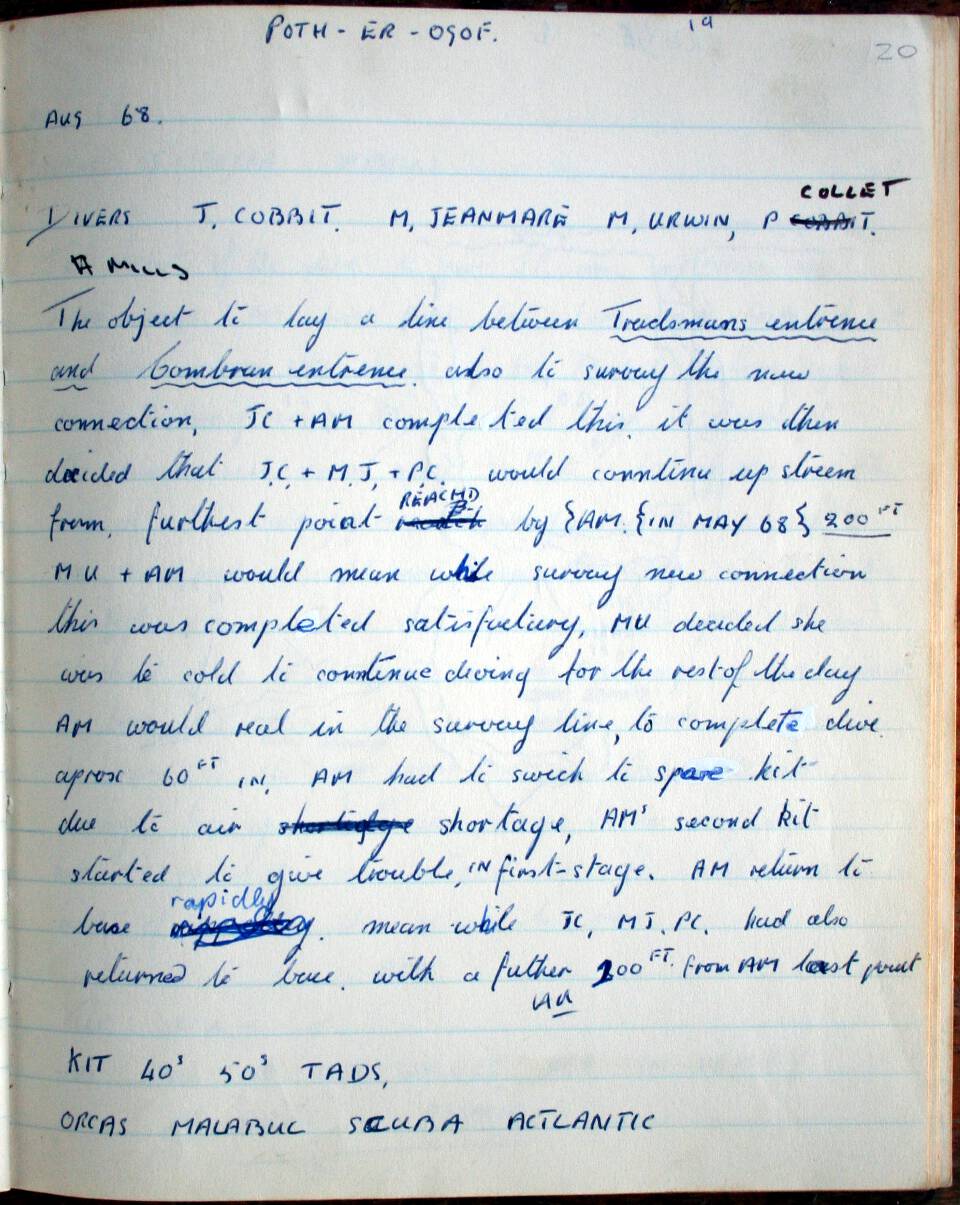 POTH - ER - OGOF. 19
20
AUG 68.
COLLET
DIVERS J, COBBIT. M, JEANMARE M, URWIN, P COBBIT.
A MILLS
The object to lay a line between Tradsmans entrence
and Combran entrence. also to survay the new
connection, JC + AM completed this. it was then
decided that J.C. + M.J, + P.C. would conntinue up streem
REACHD
from, furthest point by {AM. {IN MAY 68} 200 FT
MU + AM would mean while survay new connection
this was completed satisfactury, MU decided she
was to cold to conntinue diving for the rest of the day
AM would real in the survay line, to complete dive.
aprox 60 FT IN, AM had to swich to spare kit
due to air shortage, AMs second kit
started to give trouble, IN first-stage. AM return to
rapidly
base. mean while JC, MJ, PC. had also
returned to base. with a futher 200 FT. from AM last point
AM
KIT 40s 50s TADS,
ORCAS MALABUC SCUBA ACTLANTIC